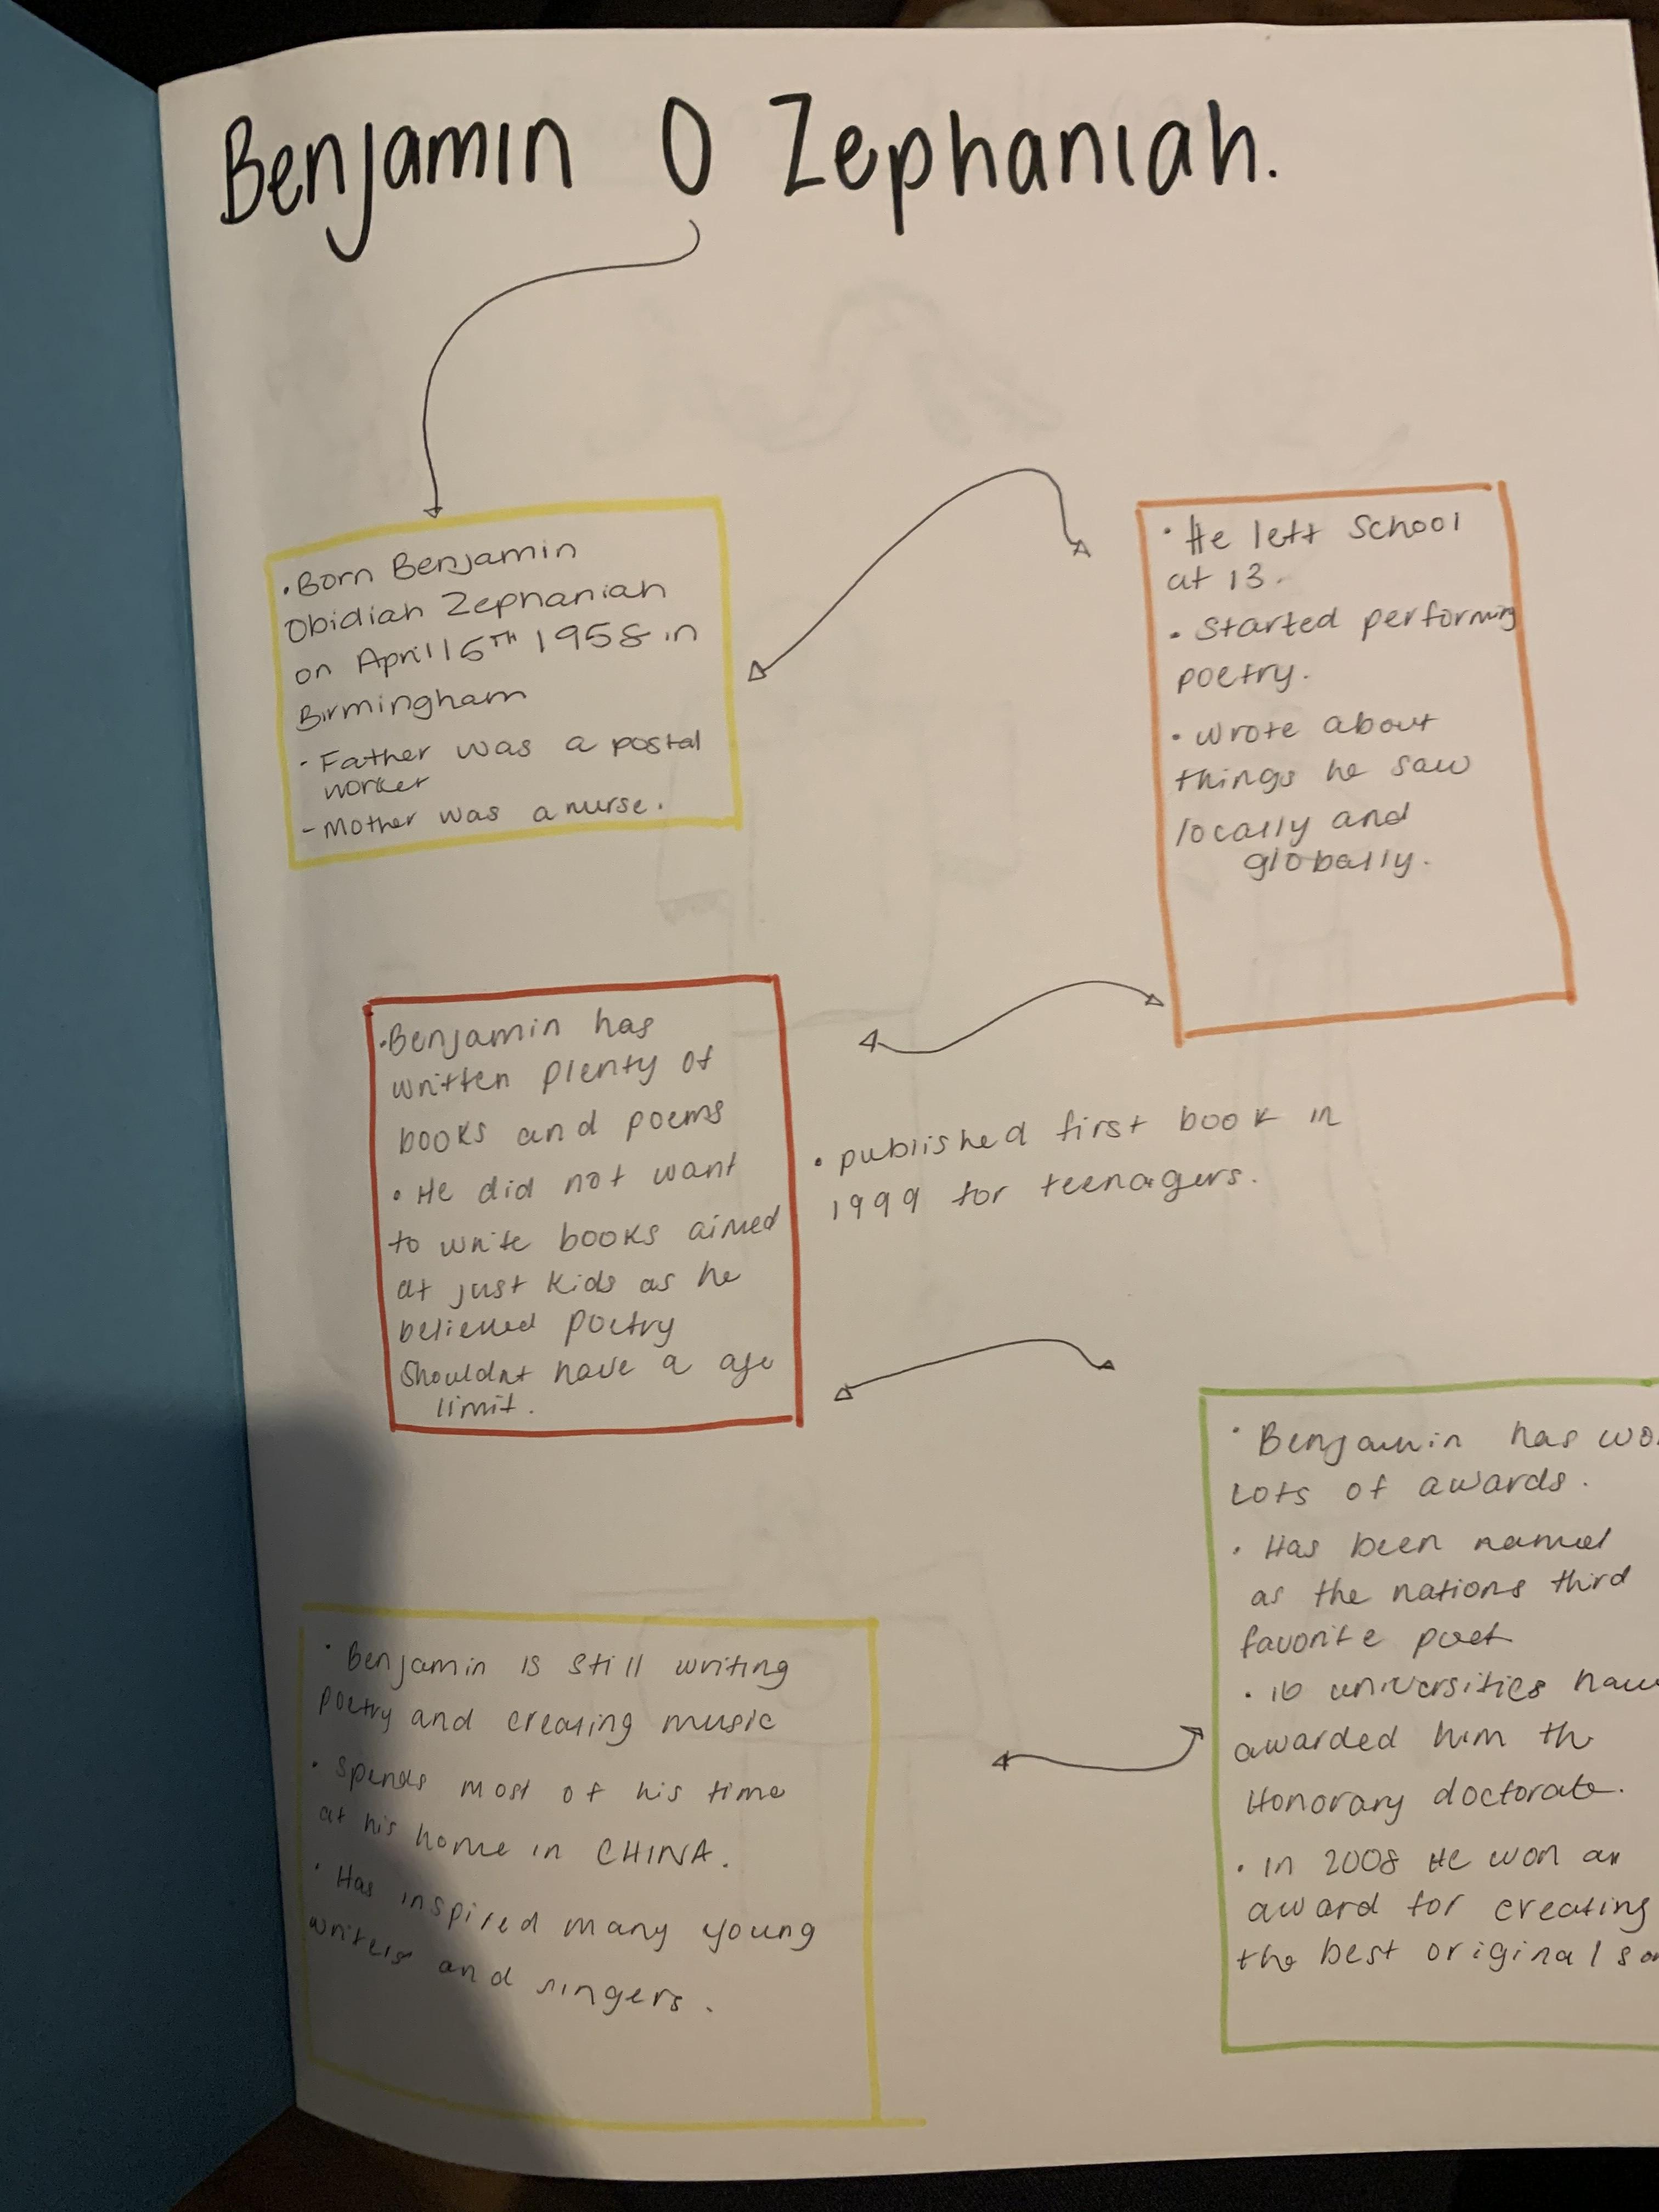 Benjamin O Zephaniah.
• Born Benjamin
Obidiah Zephaniah
on April 15TH 1958 in
Birmingham
- Father was a postal
worker
- Mother was a nurse.
• He left School
at 13.
• Started performing
poetry.
• wrote about
things he saw
locally and
globally.
• Benjamin has
written plenty of
books and poems
• He did not want
to write books aimed
at just kids as he
believed poetry
Shouldnt have a age
limit.
• published first book in
1999 for teenagers.
• Benjamin has wo
Lots of awards.
• Has been named
as the nations third
favorite poet
• 16 universities have
awarded him the
Honorary doctorate.
• in 2008 He won an
award for creating
the best original so
• Benjamin is still writing
poetry and creating music
• Spends most of his time
at his home in CHINA.
• Has inspired many young
writers and singers.